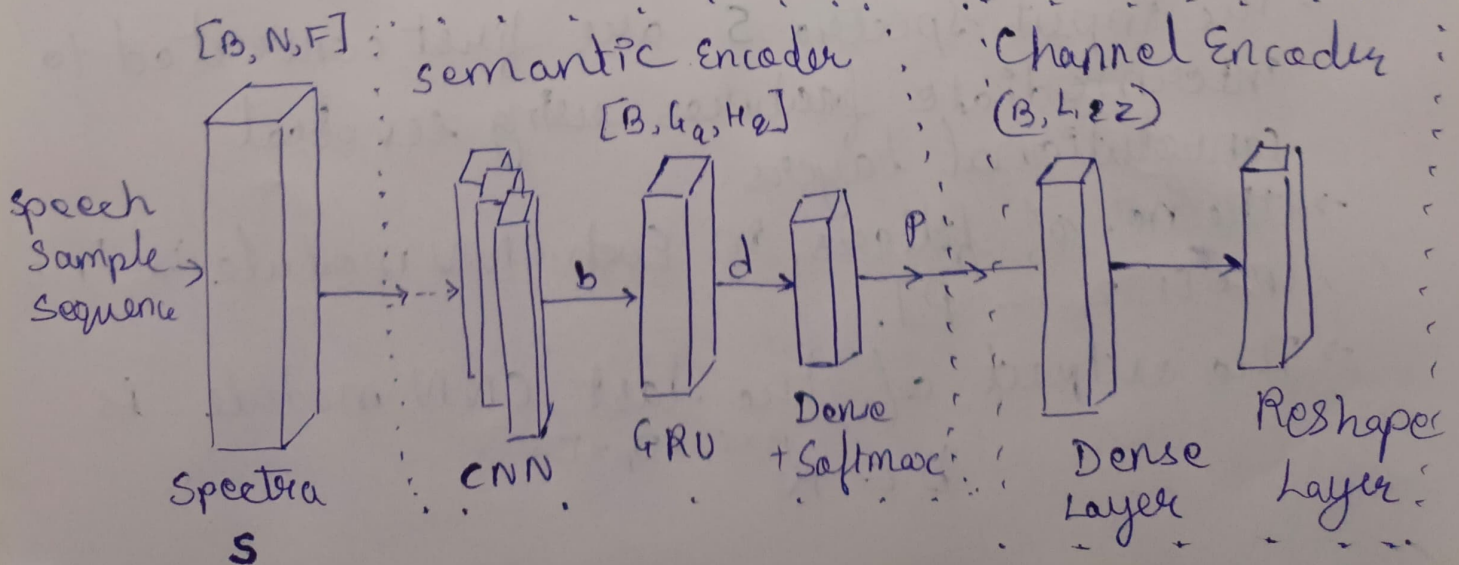 [B, N, F]
Semantic Encoder
Channel Encoder
[B, G
(B, L, 2Z)
Speech
Sample
Sequence
b
d
P
Spectra
S
CNN
GRU
Dense
+ Softmax
Dense
Layer
Reshape
Layer